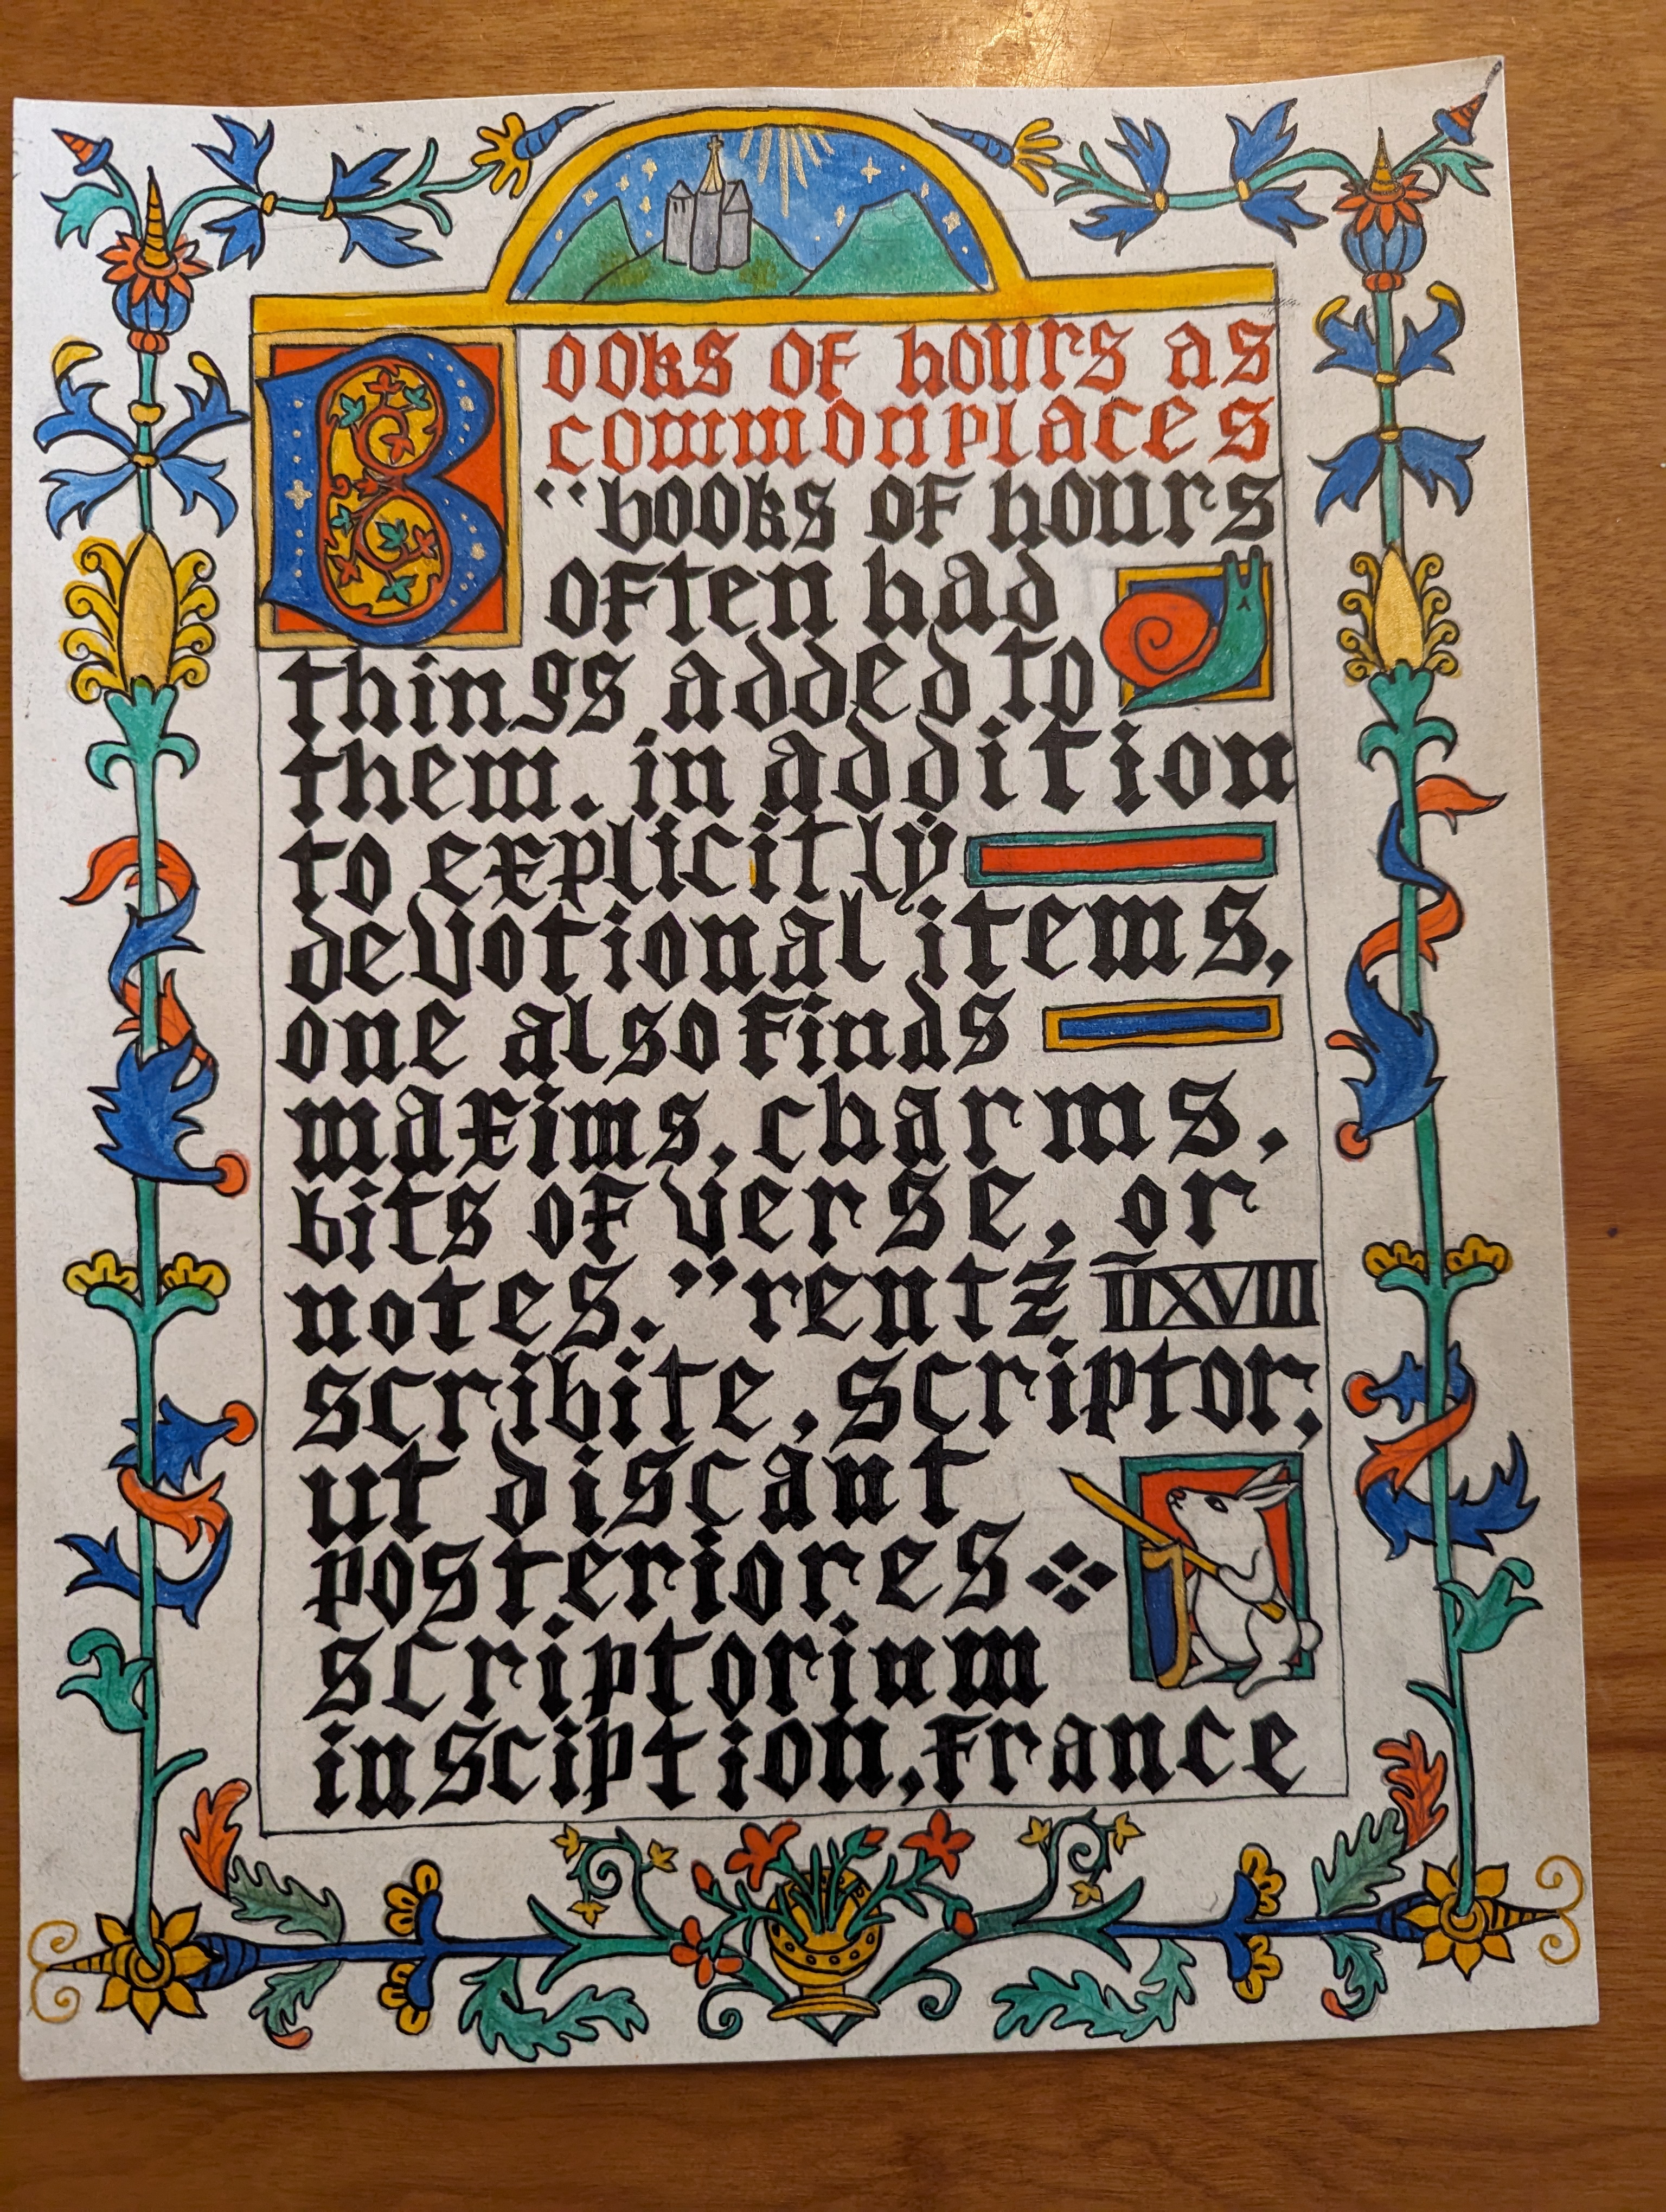 Books of hours as
commonplaces
“books of hours
often had
things added to
them. in addition
to explicitly
devotional items,
one also finds
maxims, charms,
bits of verse, or
notes.” rentz ĪĪXVIII
scribite, scriptor,
ut discant
posteriores
scriptorium
insciption, France